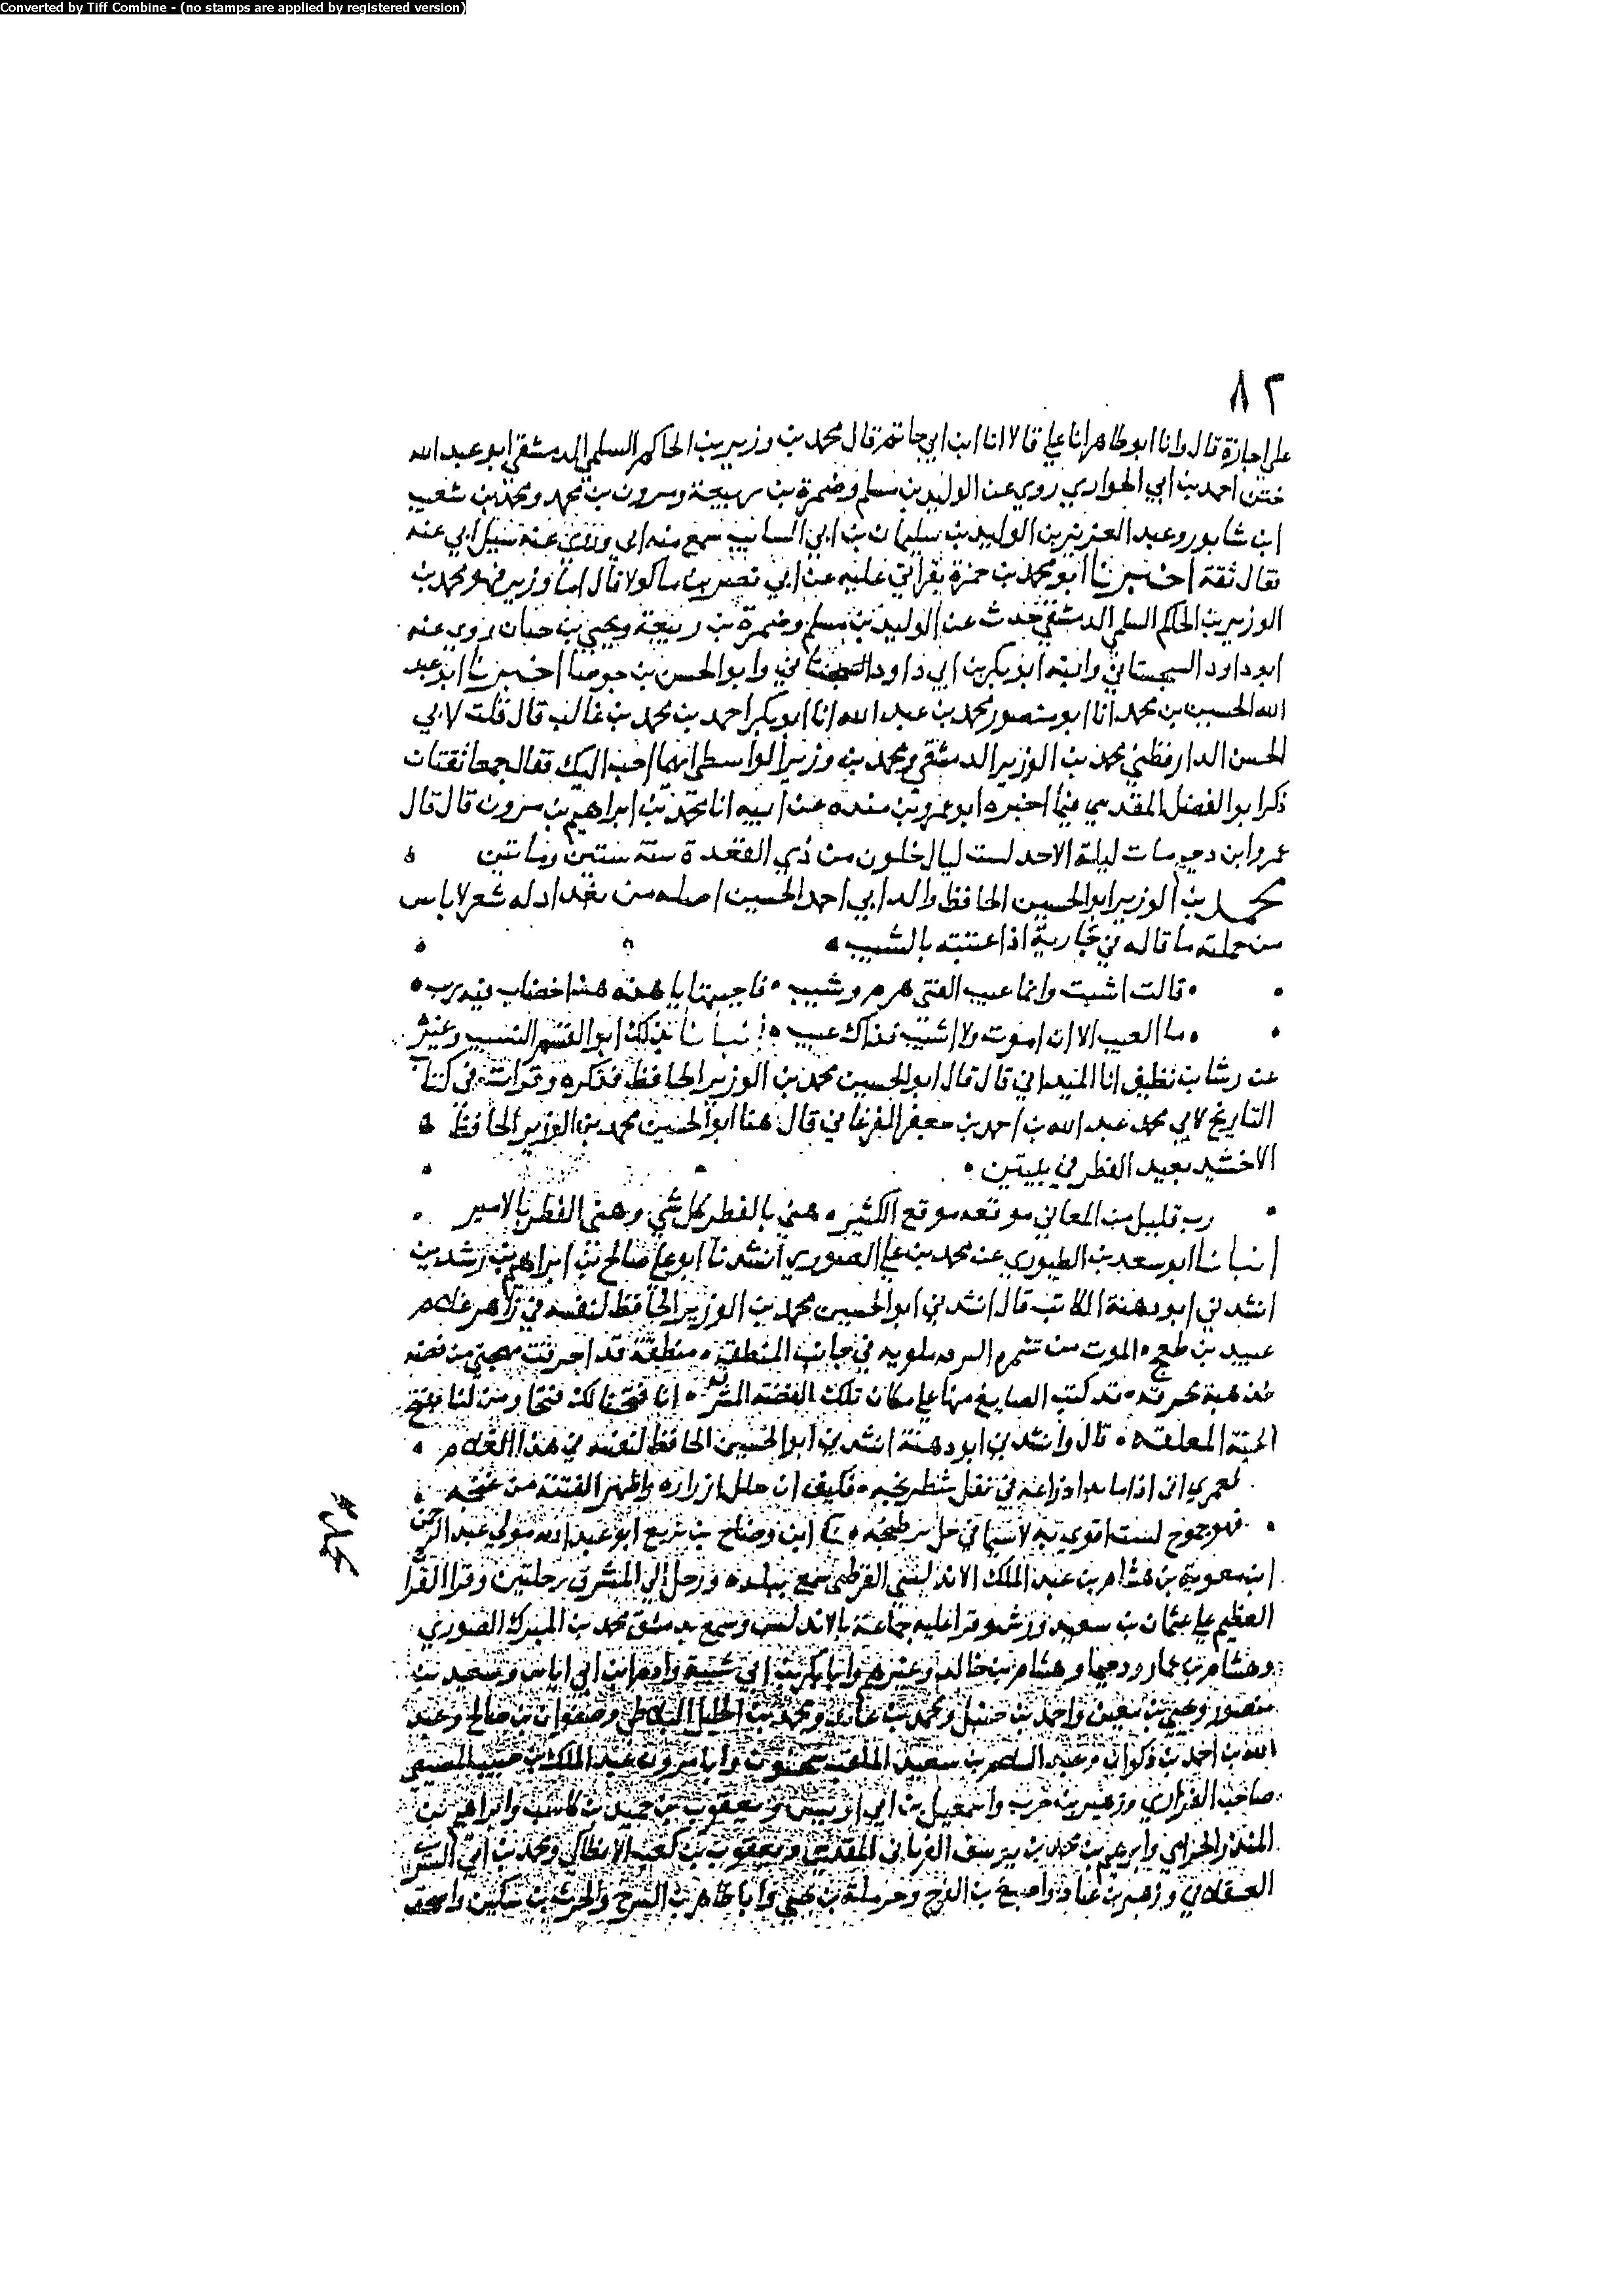 Converted by Tiff Combine - (no stamps are applied by registered version)
٨٢
علي اجازة قال وانا ابو طاهر انا علي قالا انا ابن ابي حاتم قال محمد بن وزير بن الحاكم السلمي الدمشقي ابو عبد الله
ختن احمد بن ابي الحواري روي عن الوليد بن مسلم وضمرة بن ربيعة ومرون بن محمد ومحمد بن شعيب
ابن شابور وعبد العزيز بن الوليد بن سليمان بن ابي السايب سمع منه ابي وروي عنه سيل ابي عنه
فقال ثقة اخبرنا ابو محمد بن حمزة بقراتي عليه عن ابي نصر بن ماكولا قال اما وزير فهو محمد بن
الوزير بن الحكم السلمي الدمشقي حدث عن الوليد بن مسلم وضمرة بن ربيعة ويحيي بن حسان روي عنه
ابو داود السجستاني وابنه ابو بكر بن ابي داود السجستاني وابو الحسن بن جوصا اخبرنا ابو عبد
الله الحسين بن محمد انا ابو منصور محمد بن عبد الله انا ابو بكر احمد بن محمد بن غالب قال قلت لابي
الحسن الدارقطني محمد بن الوزير الدمشقي ومحمد بن وزير الواسطي ايهما احب اليك فقال جمعا ثقتان
ذكر ابو الفضل المقدسي فيما اخبره ابو عمرو بن منده عن ابيه انا محمد بن ابراهيم بن مرون قال قال
عمرو ابن دحيم مات ليلة الاحد لست ليال خلون من ذي القعدة سنة ستين وماتين
محمد بن الوزير ابو الحسين الحافظ والد ابي احمد الحسين اصله من بغداد له شعر لا باس
من جملته ما قاله في جارية اذا عتبته بالشيب
قالت اشبت وانما عيب الفتي هرم وشيب فاجبتها يا هذه هذا خضاب فيه ريب
ما العيب الا ان اموت ولا اشيب فذاك عيب انبانا بذلك ابو القسم النسيب وغيره
عن رشا بن نظيف انا الميداني قال قال ابو الحسين محمد بن الوزير الحافظ فذكره وقراته في كتاب
التاريخ لابي محمد عبد الله بن احمد بن جعفر الفرغاني قال هنا ابو الحسين محمد بن الوزير الحافظ
الاخشيد بعيد الفطر في بيتين
رب قليل من المعاني موقعه موقع الكثير هني بالفطر كل شي وهني الفطر بالامير
انبانا ابو سعد بن الطيوري عن محمد بن علي الصوري انشدنا ابو علي صالح بن ابراهيم بن رشدين
انشدني ابو دهنة الكاتب قال انشدني ابو الحسين محمد بن الوزير الحافظ لنفسه في زاهر غلام
عبيد بن طغج الموت من في جانب المنطقة منطقة قد احرقت مهجتي من فضه
مذهبة محرقه قد كتب الصايغ منها علي مكان تلك الفضة المشرقه انا فتحنا لك فتحا ومن لنا بفتح
الجنة المعلقه قال وانشدني ابو دهنة انشدني ابو الحسين الحافظ لنفسه في هذا الغلام
لعمري اني اذا ما بدا زاعه في نقل شطرنجه فكيف ان حلل ازراره واظهر الفتنة من غنجه
ابن وضاح بن بزيع ابو عبد الله مولي عبد الرحمن
محمد
ابن معوية بن هشام بن عبد الملك الاندلسي القرطبي سمع ببلده ورحل الي المشرق رحلتين وقرا القرا
العظيم علي عثمان بن سعيد ورش وقرا عليه جماعة بالاندلس وسمع بدمشق محمد بن المبرك الصوري
وهشام بن عمار ودحيما وهشام بن خالد وغيرهم وابا بكر بن ابي شيبة وادم بن ابي اياس وسعيد بن
منصور ويحيي بن معين واحمد بن حنبل ومحمد بن عايذ ومحمد بن الخليل البلاطي وصفوان بن صالح وعبد
الله بن احمد بن ذكوان وعبد السلام بن سعيد الملقب سحنون وابا مرون عبد الملك بن حبيب المصيصي
صاحب الفزاري وزهير بن حرب واسمعيل بن ابي اويس ويعقوب بن حميد بن كاسب وابراهيم بن
المنذر الحزامي وابرهيم بن محمد بن يوسف الفريابي المقدسي ويعقوب بن كعب الانطاكي ومحمد بن ابي السري
العسقلاني وزهير بن عباد واصبغ بن الفرج وحرملة بن يحيي وابا طاهر بن السرح والحرث بن مسكين واسحق